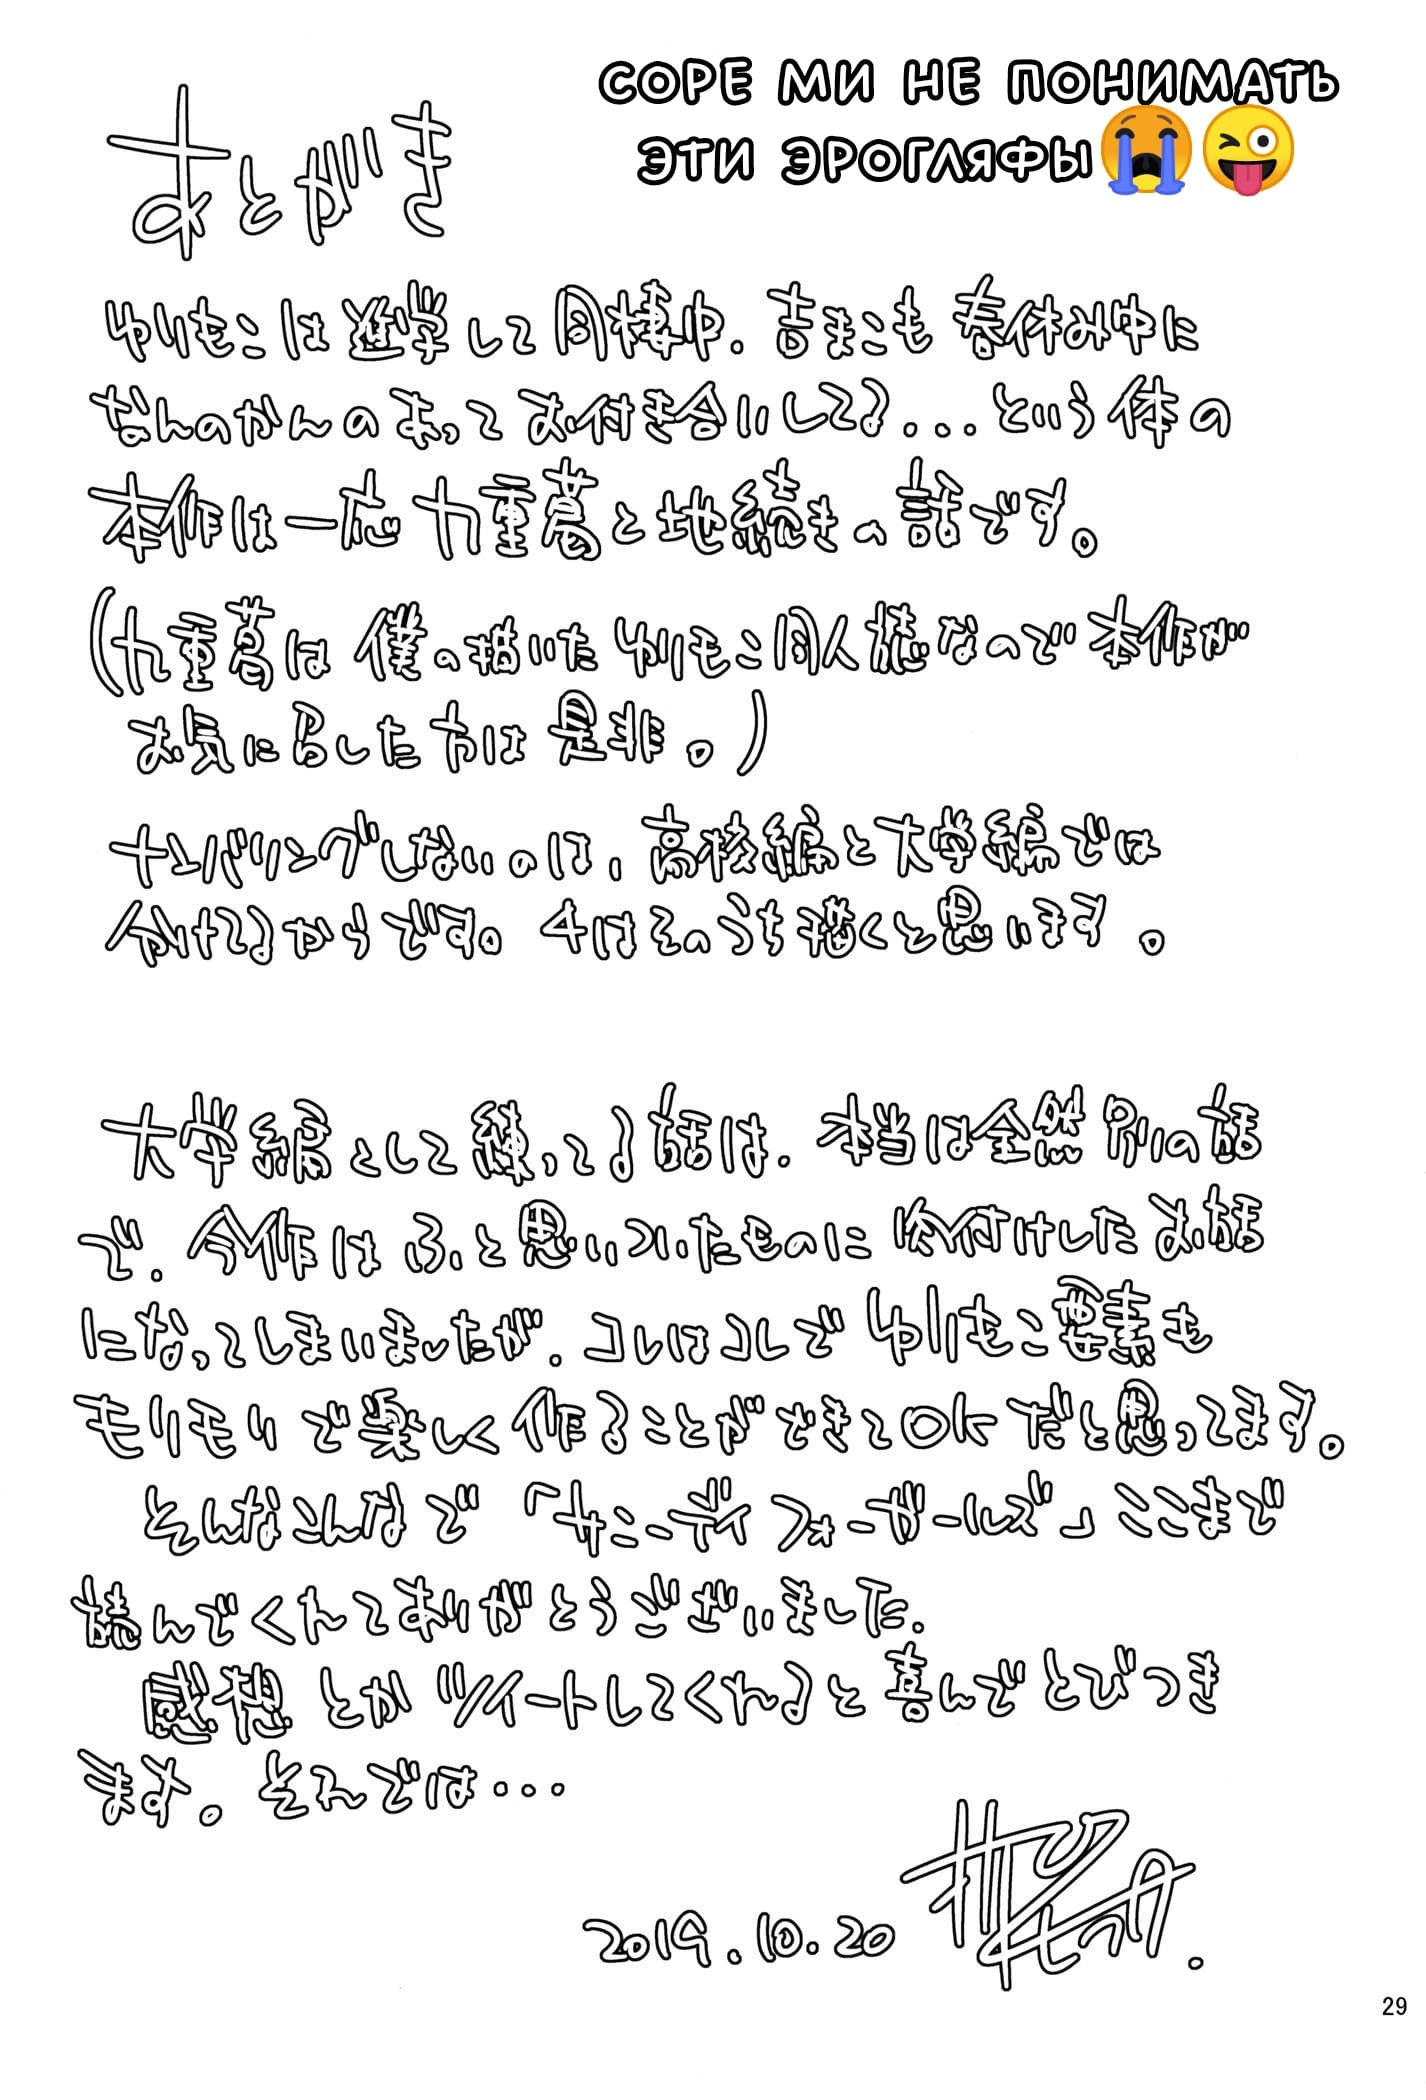 СОРЕ МИ НЕ ПОНИМАТЬ
ЭТИ ЭРОГЛЯФЫ😭😜
あとがき
ゆりもこは進学して同棲中. 吉まこも春休み中に
なんのかんのあってお付き合いしてる...という体の
本作は一応九重葛と地続きの話です。
(九重葛は僕の描いたゆりもこ同人誌なので本作が
お気に召した方は是非。)
ナンバリングしないのは、高校編と大学編では
分けてるからです。4はそのうち描くと思います。
大学編として練ってる話は. 本当は全然別の話
で. 今作はふと思いついたものに肉付けしたお話
になってしまいましたが. コレはコレでゆりもこ要素も
モリモリで楽しく作ることができてOKだと思ってます。
そんなこんなで「サニーディフォーガールズ」ここまで
読んでくれてありがとうございました.
感想とかツイートしてくれると喜んでとびつき
ます。それでは...
2019.10.20
29